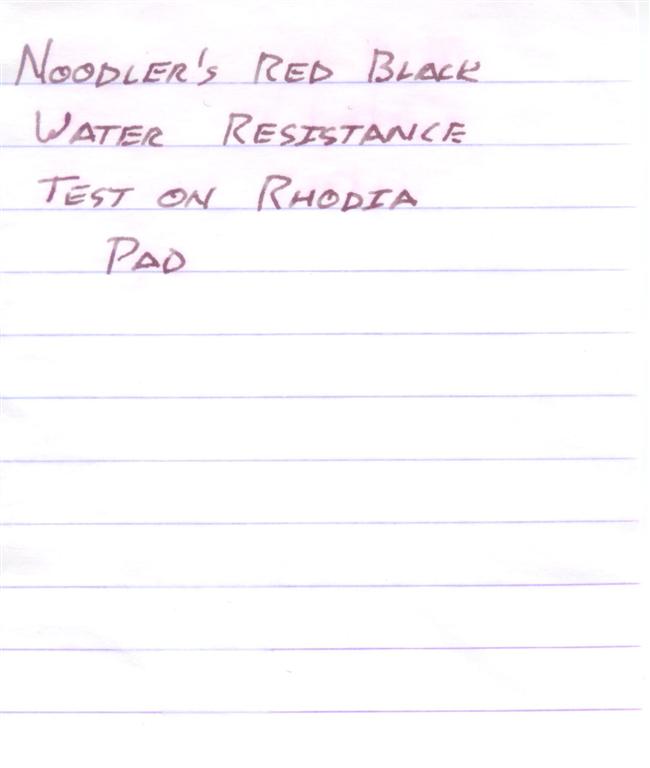 NOODLER'S RED BLACK
WATER RESISTANCE
TEST ON RHODIA
PAD